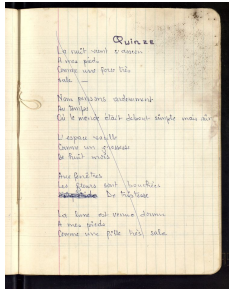 Quinze
La nuit vient s'asseoir
A mes pieds
Comme une fille très
sale —
Nous pensons ardemment
Au temps
Où le monde était debout simple mais
L'espace
Comme un
De huit mois
Aux fenêtres
Les fleurs sont
De tristesse
La lune est venue
A mes pieds
Comme une fille très sale